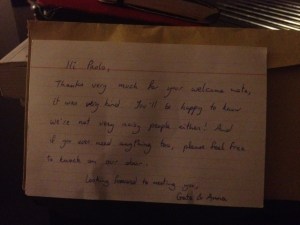 Hi Paola,
Thanks very much for your welcome note,
it was very kind. You'll be happy to know
we're not very noisy people either! And
if you ever need anything too, please feel free
to knock on our door.
Looking forward to meeting you,
& Anna